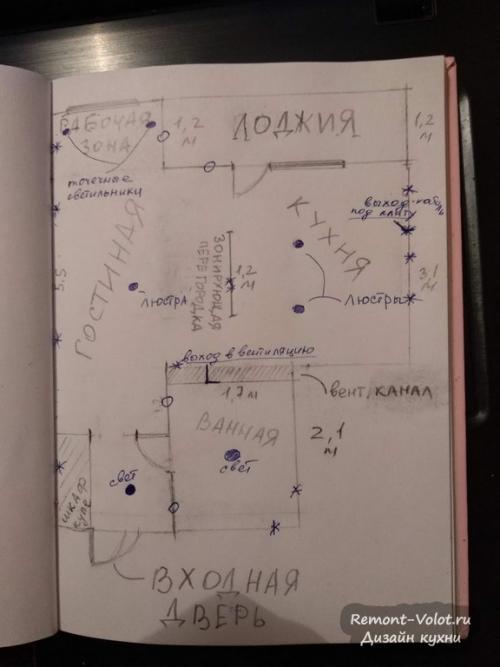 РАБОЧАЯ
ЗОНА
1,2
м
ЛОДЖИЯ
1,2
м
точечные
светильники
ГОСТИНАЯ
КУХНЯ
выход кабеля
под плиту
5.5
ЗОНИРУЮЩАЯ
ПЕРЕГОРОДКА
1,2
м
ЛЮСТРА
ЛЮСТРЫ
3,1
м
выход в вентиляцию
1,7м
ВЕНТ. КАНАЛ
ВАННАЯ
2,1
м
свет
свет
шкаф
купе
ВХОДНАЯ
ДВЕРЬ
Remont-Volot.ru
Дизайн кухни